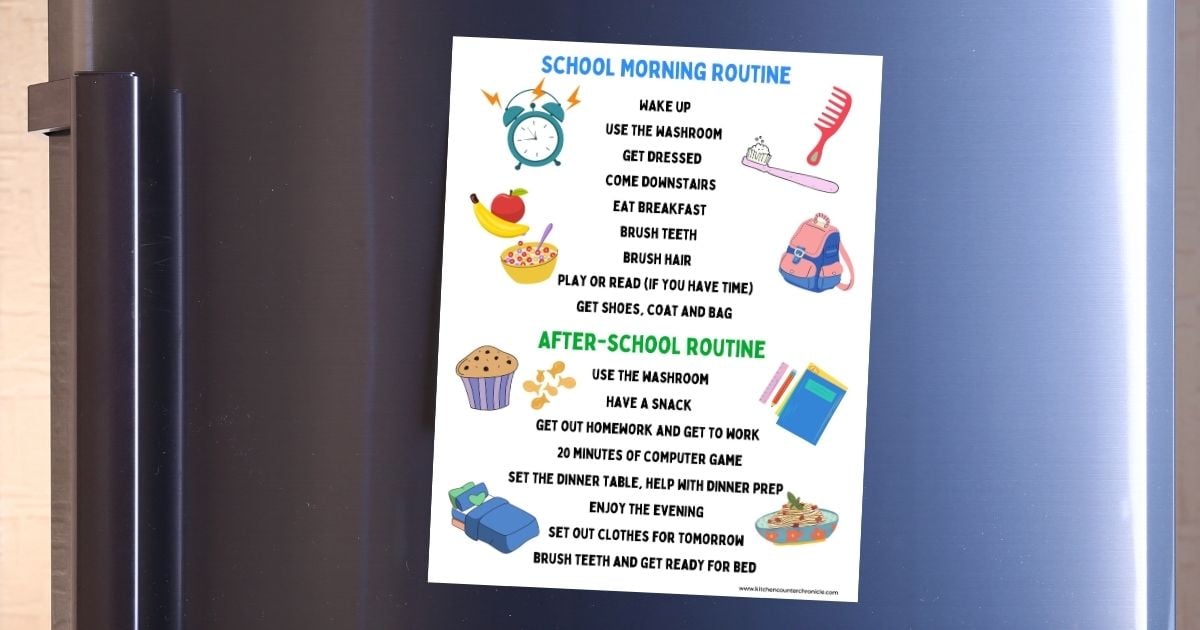 SCHOOL MORNING ROUTINE
WAKE UP
USE THE WASHROOM
GET DRESSED
COME DOWNSTAIRS
EAT BREAKFAST
BRUSH TEETH
BRUSH HAIR
PLAY OR READ (IF YOU HAVE TIME)
GET SHOES, COAT AND BAG
AFTER-SCHOOL ROUTINE
USE THE WASHROOM
HAVE A SNACK
GET OUT HOMEWORK AND GET TO WORK
20 MINUTES OF COMPUTER GAME
SET THE DINNER TABLE, HELP WITH DINNER PREP
ENJOY THE EVENING
SET OUT CLOTHES FOR TOMORROW
BRUSH TEETH AND GET READY FOR BED
www.kitchencounterchronicle.com